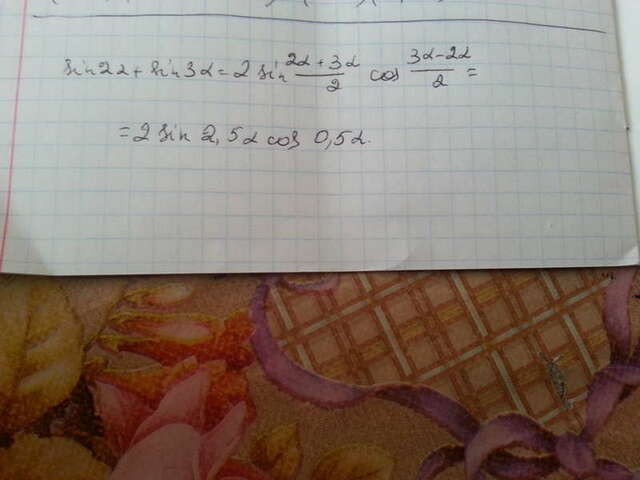 sin2α + sin3α = 2 sin (2α + 3α)/2 cos (3α - 2α)/2 =
= 2 sin 2,5α cos 0,5α.